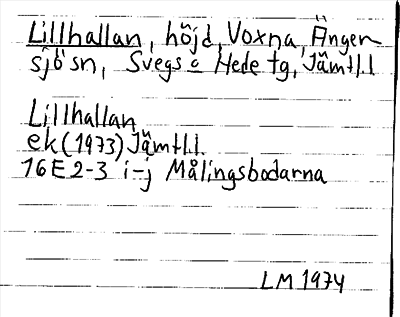 Lillhallan, höjd, Voxna, Änger
sjö sn, Svegs o Hede tg, Jämtl.l
Lillhallan
ek (1973) Jämtl.l.
16E2-3 i-j Målingsbodarna
LM 1974